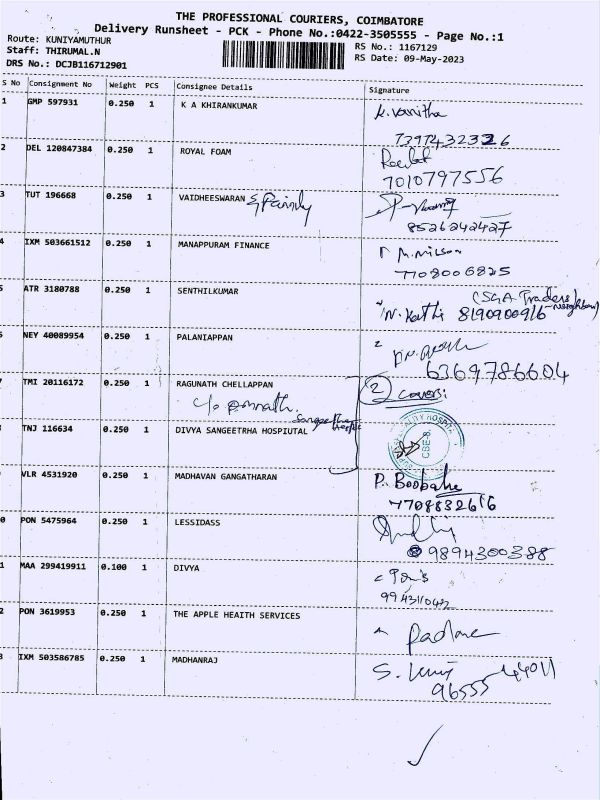 THE PROFESSIONAL COURIERS, COIMBATORE
Delivery Runsheet - PCK - Phone No.:0422-3505555 - Page No.:1
Route: KUNIYAMUTHUR
Staff: THIRUMAL.N
DRS No.: DCJB116712901
RS No.: 1167129
RS Date: 09-May-2023
S No Consignment No Weight PCS Consignee Details Signature
1 GMP 597931 0.250 1 K A KHIRANKUMAR K. Vanitha
7397432326
2 DEL 120847384 0.250 1 ROYAL FOAM
7010797556
3 TUT 196668 0.250 1 VAIDHEESWARAN & Family
8526242427
4 IXM 503661512 0.250 1 MANAPPURAM FINANCE
7708006825
5 ATR 3180788 0.250 1 SENTHILKUMAR (SGA Traders)
8190900916
6 NEY 40089954 0.250 1 PALANIAPPAN
6369786604
7 TMI 20116172 0.250 1 RAGUNATH CHELLAPPAN 2 covers
c/o
TNJ 116634 0.250 1 DIVYA SANGEETRHA HOSPIUTAL
VLR 4531920 0.250 1 MADHAVAN GANGATHARAN P. Boobalan
7708832616
0 PON 5475964 0.250 1 LESSIDASS
9894300388
1 MAA 299419911 0.100 1 DIVYA
2 PON 3619953 0.250 1 THE APPLE HEAITH SERVICES
3 IXM 503586785 0.250 1 MADHANRAJ
96555 44011